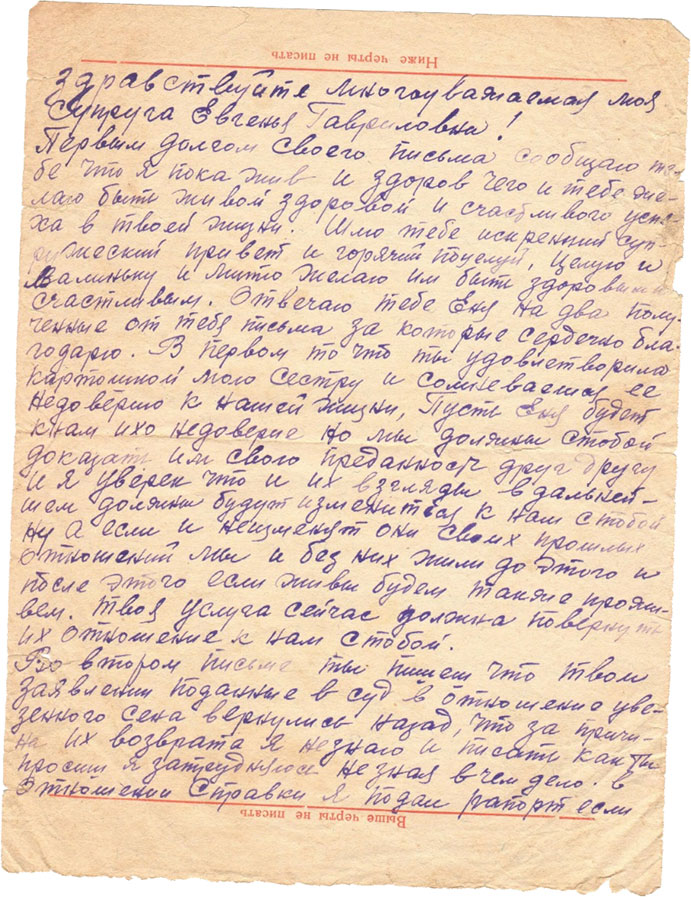 Ниже черты не писать
Здравствуйте многоуважаемая моя
супруга Евгенья Гавриловна!
Первым долгом своего письма сообщаю те-
бе что я пока жив и здоров чего и тебе же-
лаю быть живой здоровой и счастливого успе-
ха в твоей жизни. Шлю тебе искренний суп-
ружеский привет и горячий поцелуй, целую и
Валиньку и Митю желаю им быть здоровыми
счастливым. Отвечаю тебе Еня на два полу-
ченные от тебя письма за которые сердечно бла-
годарю. В первом то что ты удовлетворила
картошкой мою сестру и сомневаешся ее
недоверию к нашей жизни, Пусть Еня будет
к нам ихо недоверие но мы должны стобой
доказать им свою преданность друг другу
и я уверен что и их взгляды в дальней-
шем должны будут изменится к нам стобой
ну а если и неизменят они своих прошлых
отношений мы и без них жили до этого и
после этого если живы будем также прожи-
вем. Твоя услуга сейчас должна повернуть
их отношение к нам стобой.
Во втором письме ты пишеш что твои
заявлении поданные в суд в отношение уве-
зенного сена вернулись назад, что за причи-
на их возврата я незнаю и писать как ты
просиш я затрудняюсь незная в чем дело. в
отношении Справки я подал рапорт если
Выше черты не писать